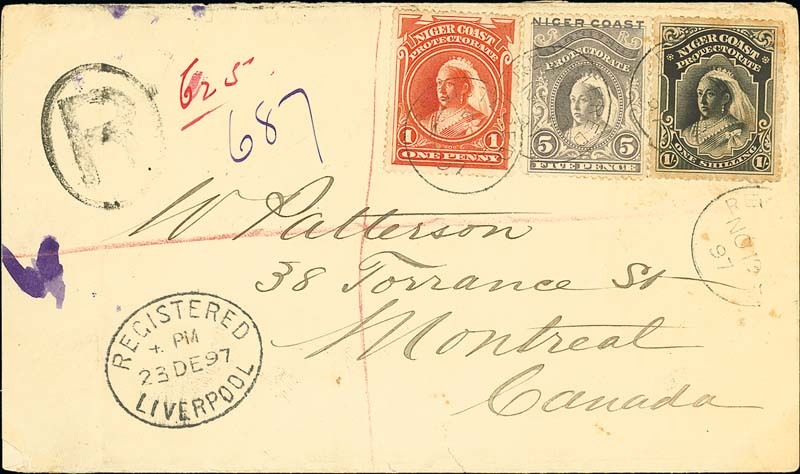 R
625
687
NIGER COAST
PROTECTORATE
1 1
ONE PENNY
NIGER COAST
PROTECTORATE
5 5
FIVE PENCE
NIGER COAST
PROTECTORATE
1/- 1/-
ONE SHILLING
W Patterson
38 Torrance St
Montreal
Canada
97
REGISTERED
PM
23 DE 97
LIVERPOOL